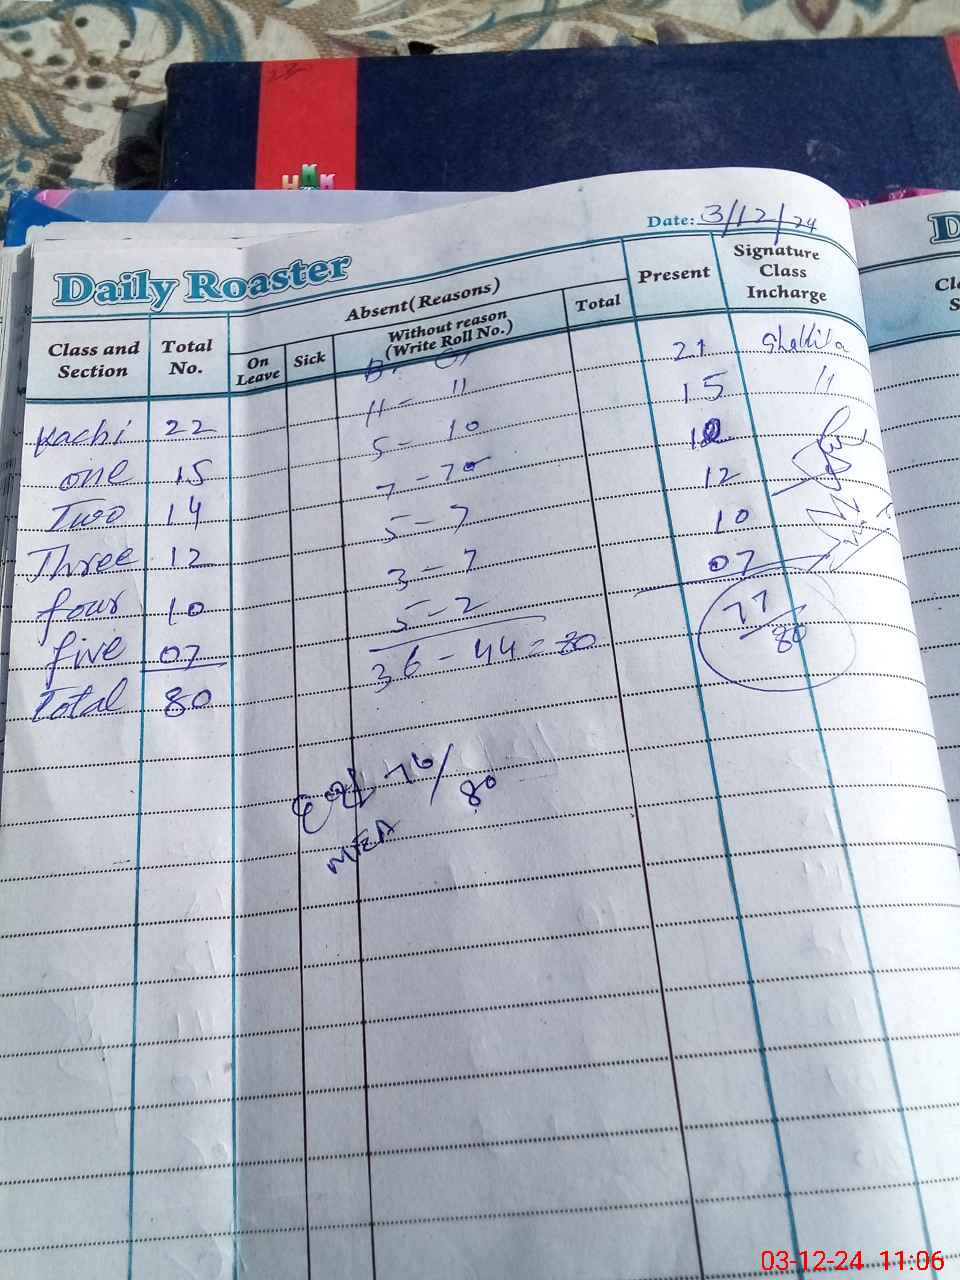 Date: 3/12/24
Daily Roaster
Class and Section
Total No.
Absent(Reasons)
On Leave
Sick
Without reason (Write Roll No.)
Total
Present
Signature Class Incharge
B. G,
21 Shakila
11 - 11
15 11
Kachi 22 5 - 10
one 15 12
Two 14 5 - 7 10
Three 12 3 - 7 07
four 10 5 - 2 77/80
five 07 36 - 44 = 80
Total 80
76/80
MEA
D
03-12-24 11:06